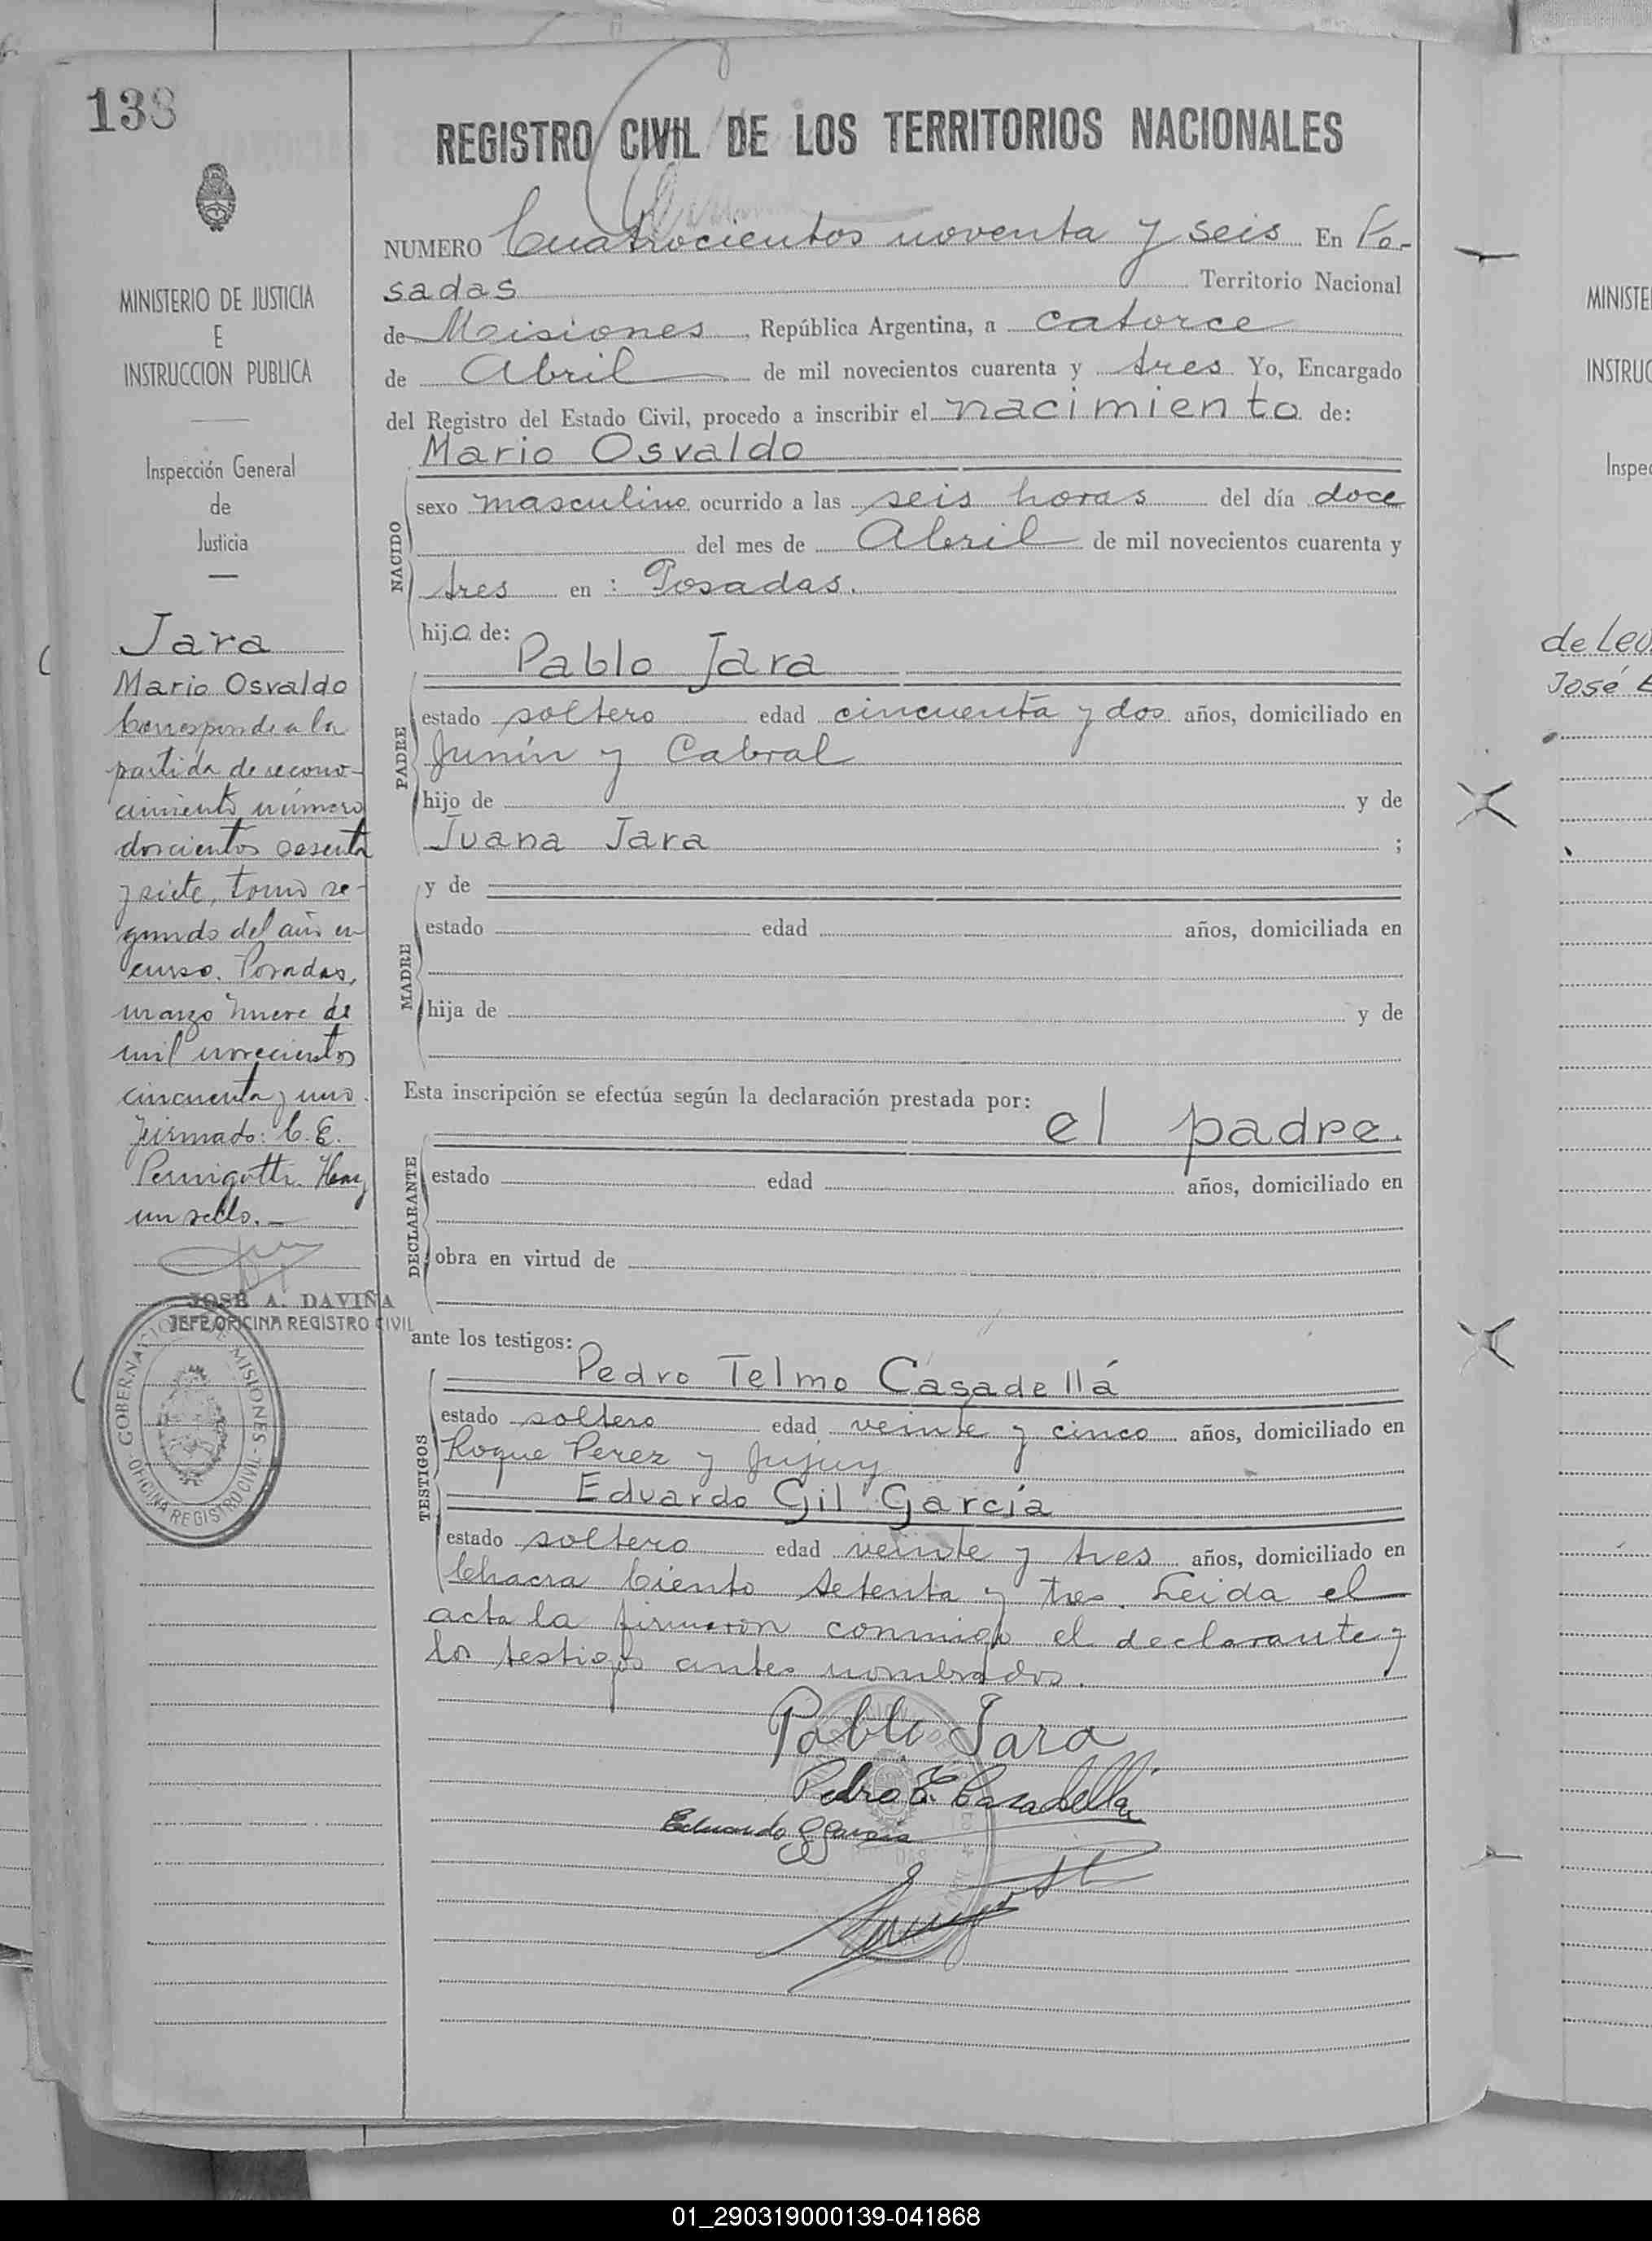 138
REGISTRO CIVIL DE LOS TERRITORIOS NACIONALES
NUMERO Cuatrocientos noventa y seis En Po-
sadas Territorio Nacional
de Misiones, República Argentina, a catorce
de Abril de mil novecientos cuarenta y tres Yo, Encargado
del Registro del Estado Civil, procedo a inscribir el nacimiento de:
Mario Osvaldo
NACIDO
sexo masculino ocurrido a las seis horas del día doce
del mes de Abril de mil novecientos cuarenta y
tres en : Posadas.
hijo de:
Pablo Jara
PADRE
estado soltero edad cincuenta y dos años, domiciliado en
Junín y Cabral
hijo de y de
Juana Jara ;
y de
MADRE
estado edad años, domiciliada en
hija de y de
Esta inscripción se efectúa según la declaración prestada por:
el padre.
DECLARANTE
estado edad años, domiciliado en
obra en virtud de
ante los testigos:
Pedro Telmo Casadellá
TESTIGOS
estado soltero edad veinte y cinco años, domiciliado en
Roque Perez y Jujuy
Eduardo Gil García
estado soltero edad veinte y tres años, domiciliado en
Chacra Ciento setenta y tres. Leida el
acta la firmaron conmigo el declarante y
los testigos antes nombrados.
Pablo Jara
Pedro T. Casadellá
Eduardo G García
MINISTERIO DE JUSTICIA
E
INSTRUCCION PUBLICA
Inspección General
de
Justicia
Jara
Mario Osvaldo
Corresponde a la
partida de recono-
cimiento número
doscientos sesenta
y siete, tomo se-
gundo del año en
curso. Posadas,
marzo nueve de
mil novecientos
cincuenta y uno.
Firmado: C. E.
Pernigotti. Hay
un sello.-
JOSE A. DAVIÑA
JEFE OFICINA REGISTRO CIVIL
GOBERNACION DE MISIONES
OFICINA REGISTRO CIVIL
MINISTE
INSTRUC
Inspec
de Leo
José
01_290319000139-041868